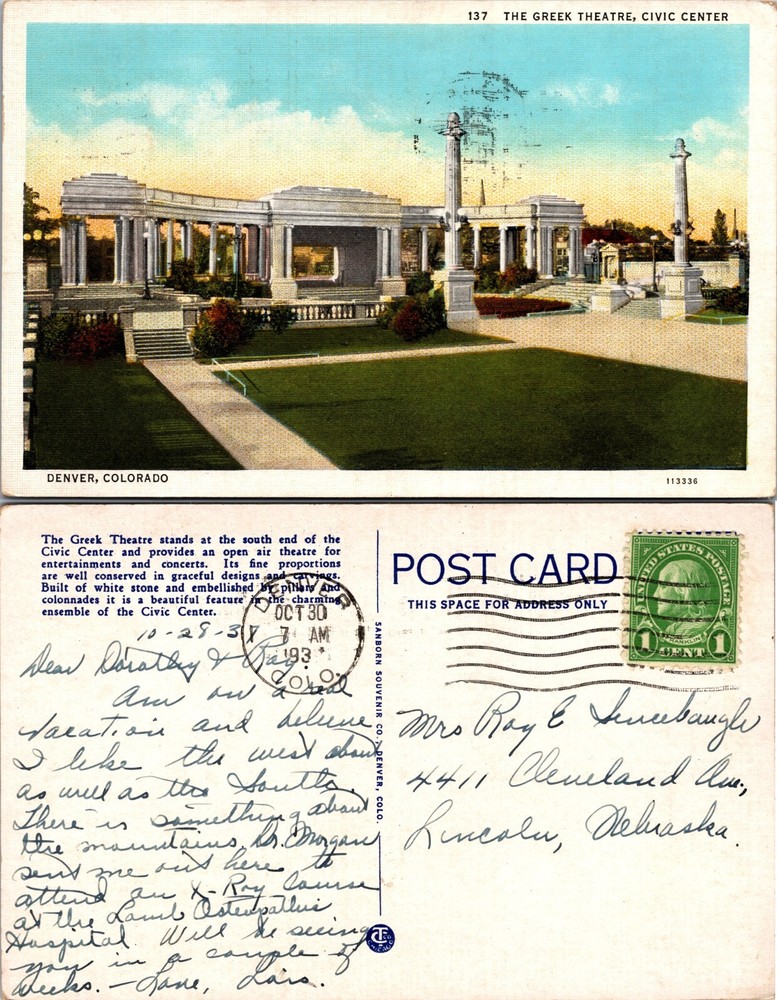 137 THE GREEK THEATRE, CIVIC CENTER
DENVER, COLORADO
113336
The Greek Theatre stands at the south end of the
Civic Center and provides an open air theatre for
entertainments and concerts. Its fine proportions
are well conserved in graceful designs and carvings.
Built of white stone and embellished by pillars and
colonnades it is a beautiful feature in the charming
ensemble of the Civic Center.
POST CARD
THIS SPACE FOR ADDRESS ONLY
UNITED STATES POSTAGE
FRANKLIN
1 CENT 1
DENVER
OCT 30
7 AM
193
COLO.
SANBORN SOUVENIR CO., DENVER, COLO.
10-29-37
Dear Dorothy & Ray,
Am on a real
vacation and believe
I like the west about
as well as the South.
There is something about
the mountains. Dr. Morgan
sent me out here to
attend an X-Ray Course
at the Lamb Osteopathic
Hospital. Will be seeing
you in a couple of
weeks. - Love, Lois.
Mrs Roy E Sencebaugh
4411 Cleveland Ave.,
Lincoln, Nebraska.
CT CO
CHICAGO